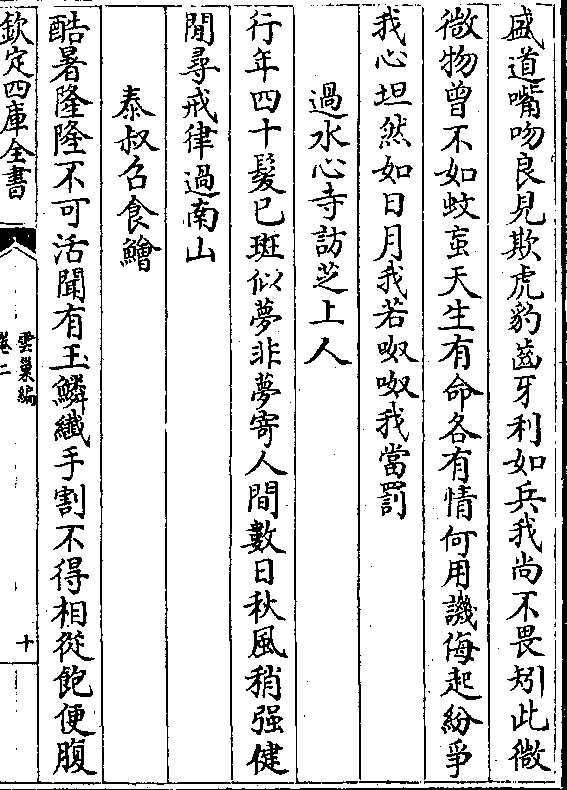 盛道嘴吻良見欺虎豹齒牙利如兵我尚不畏矧此微
微物曾不如蚊䖟天生有命各有情何用譏侮起紛爭
我心坦然如日月我若呶呶我當罰
過水心寺訪芝上人
行年四十髮已斑似夢非夢寄人間數日秋風稍强健
閒尋戒律過南山
泰叔召食鱠
酷暑隆隆不可活聞有玉鱗纖手割不得相從飽便腹
欽定四庫全書
雲巢編
卷二
十